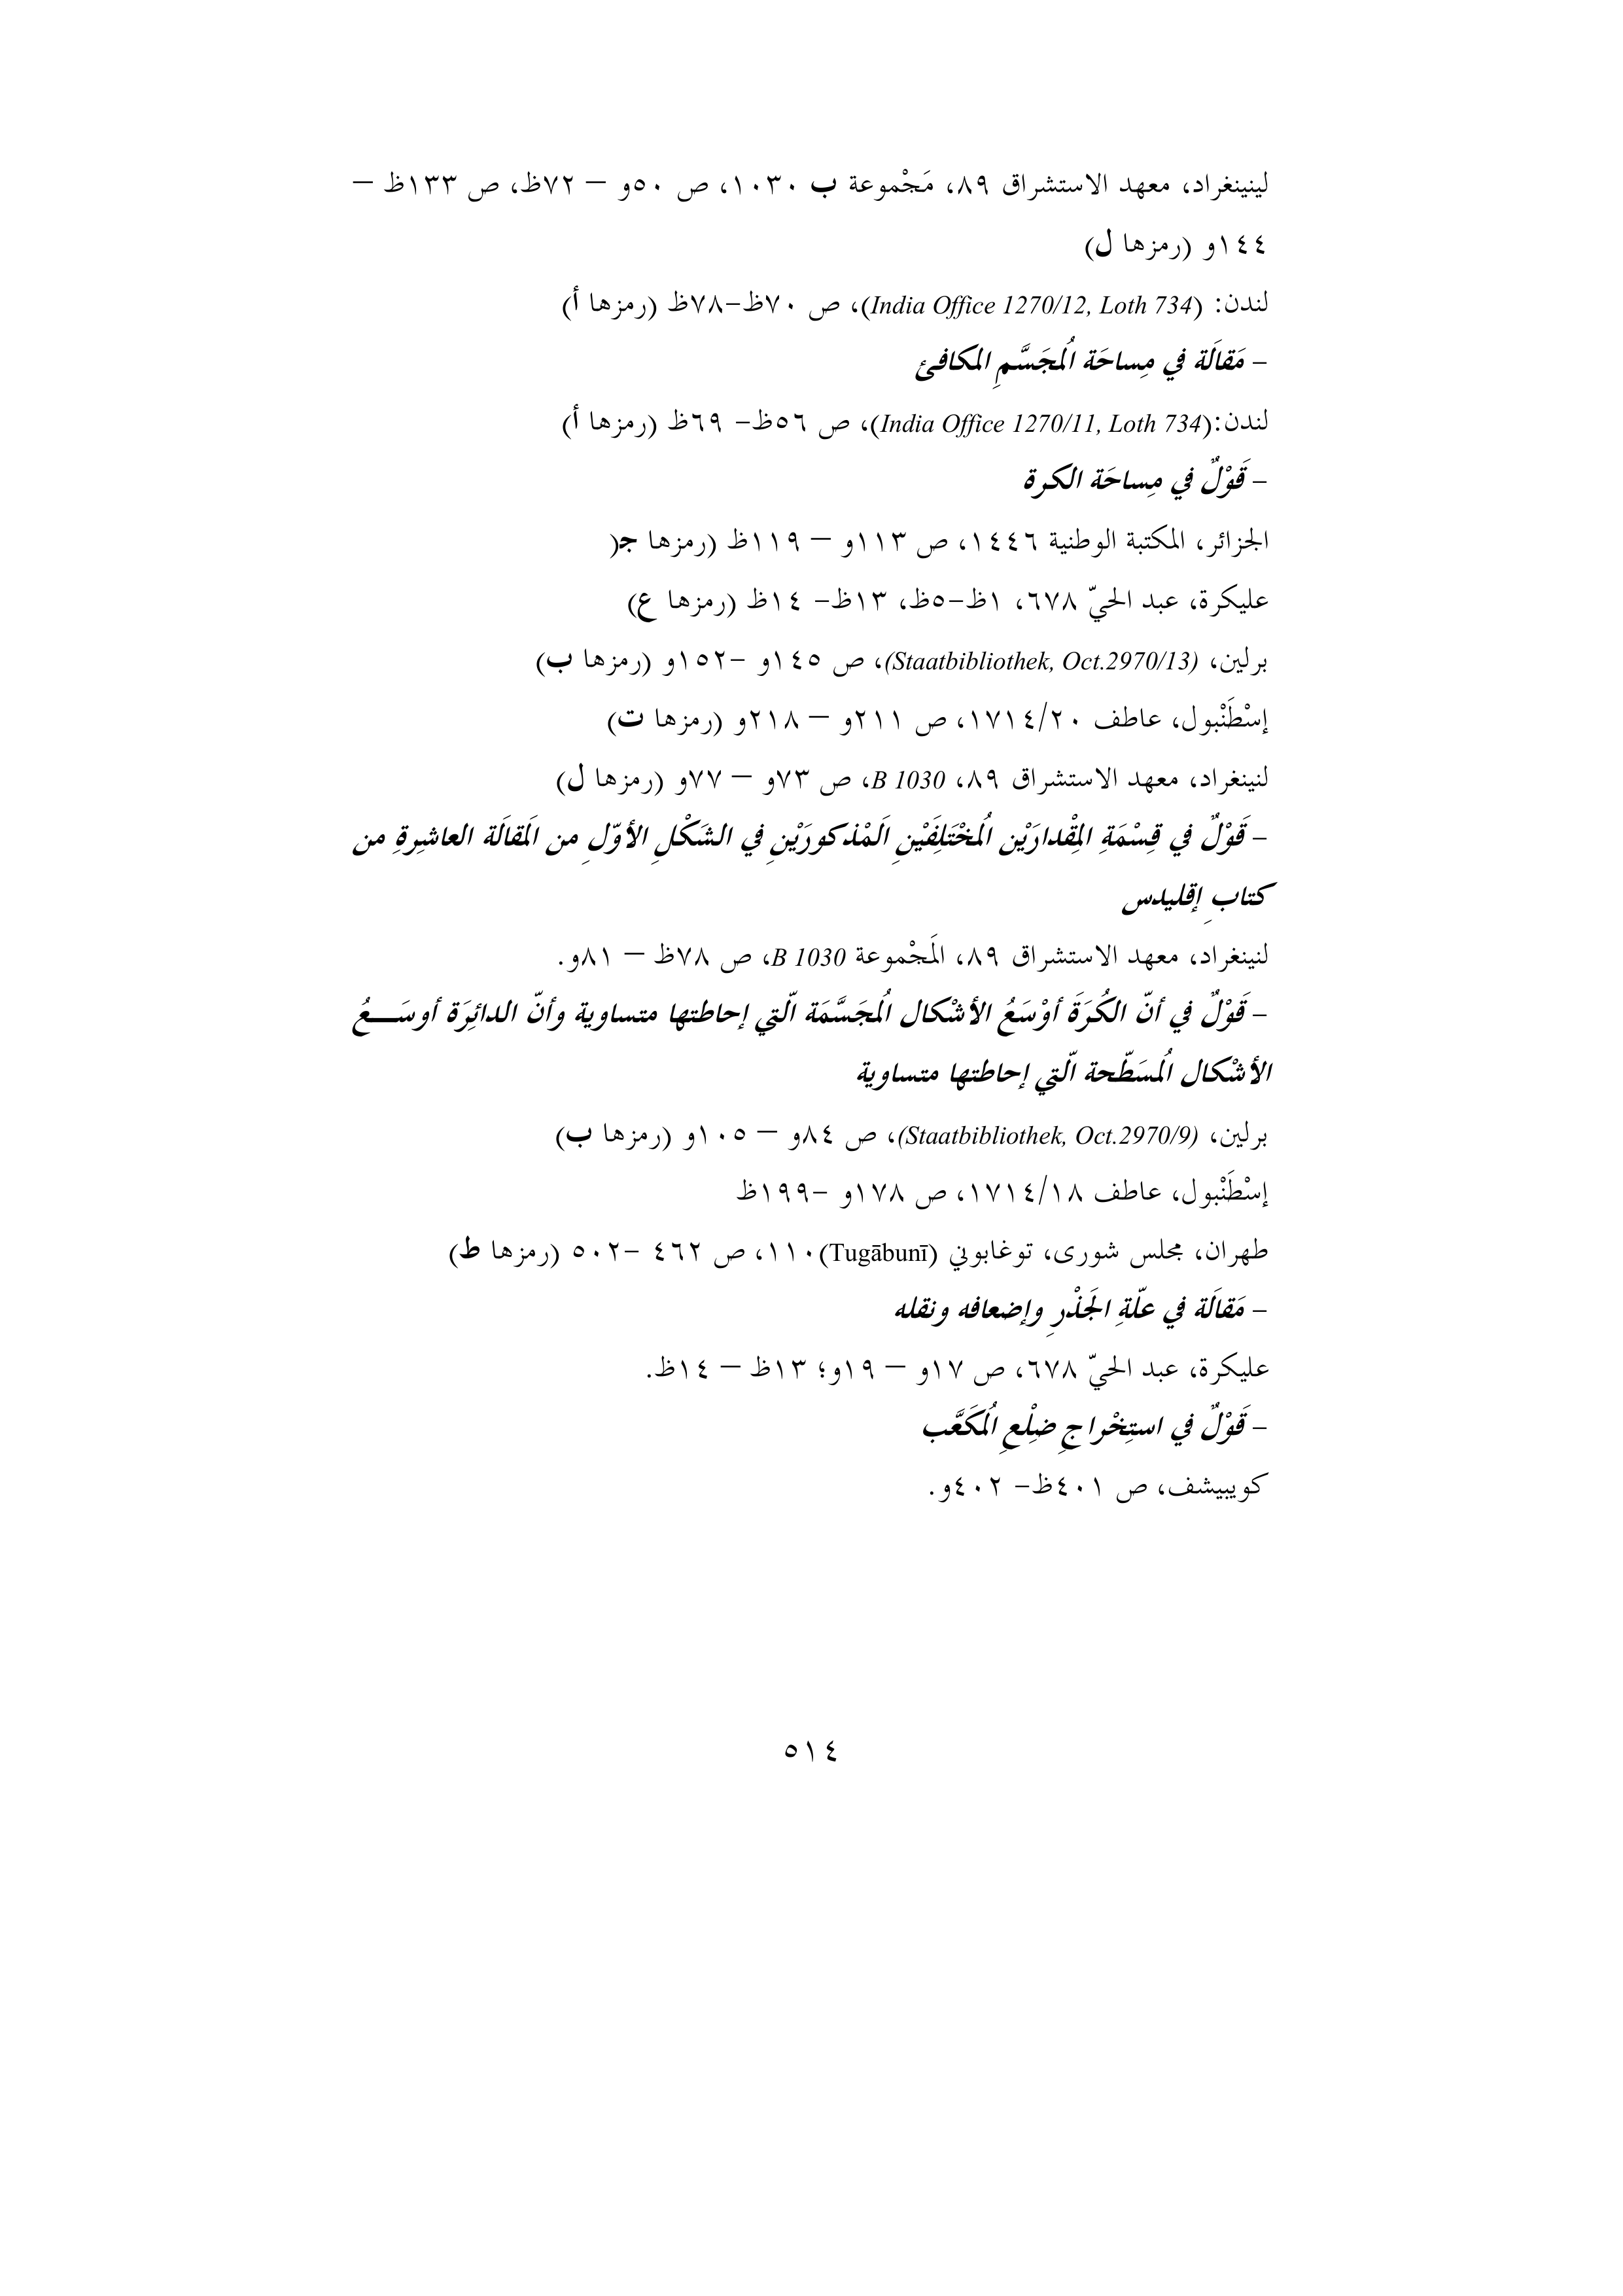 لينينغراد، معهد الاستشراق ٨٩، مَجْموعة ب ١٠٣٠، ص ٥٠و – ٧٢ظ، ص ١٣٣ظ –
١٤٤و (رمزها ل)
لندن: (India Office 1270/12, Loth 734)، ص ٧٠ظ–٧٨ظ (رمزها أ)
– مَقالَة في مِساحَة المُجَسَّمِ المكافئ
لندن:(India Office 1270/11, Loth 734)، ص ٥٦ظ– ٦٩ظ (رمزها أ)
– قَوْلٌ في مِساحَة الكرة
الجزائر، المكتبة الوطنية ١٤٤٦، ص ١١٣و – ١١٩ظ (رمزها ج(
عليكرة، عبد الحيّ ٦٧٨، ١ظ–٥ظ، ١٣ظ– ١٤ظ (رمزها ع)
برلين، (Staatbibliothek, Oct.2970/13)، ص ١٤٥و –١٥٢و (رمزها ب)
إسْطَنْبول، عاطف ١٧١٤/٢٠، ص ٢١١و – ٢١٨و (رمزها ت)
لنينغراد، معهد الاستشراق ٨٩، B 1030، ص ٧٣و – ٧٧و (رمزها ل)
– قَوْلٌ في قِسْمَةِ المِقْدارَيْن المُخْتَلِفَيْنِ المَذْكورَيْنِ في الشَكْلِ الأوّلِ من المَقالَة العاشِرةِ من
كتابِ إقليدس
لنينغراد، معهد الاستشراق ٨٩، المَجْموعة B 1030، ص ٧٨ظ – ٨١و.
– قَوْلٌ في أنّ الكُرَةَ أوْسَعُ الأشْكال المُجَسَّمَة الّتي إحاطتها متساوية وأنّ الدائِرَة أوسَـــعُ
الأشْكال المُسَطّحة الّتي إحاطتها متساوية
برلين، (Staatbibliothek, Oct.2970/9)، ص ٨٤و – ١٠٥و (رمزها ب)
إسْطَنْبول، عاطف ١٧١٤/١٨، ص ١٧٨و –١٩٩ظ
طهران، مجلس شورى، توغابوني (Tugābunī)١١٠، ص ٤٦٢ –٥٠٢ (رمزها ط)
– مَقالَة في علّةِ الجَذْرِ وإضعافه ونقله
عليكرة، عبد الحيّ ٦٧٨، ص ١٧و – ١٩و؛ ١٣ظ – ١٤ظ.
– قَوْلٌ في استِخْراجِ ضِلْعِ المُكَعَّب
كويبيشف، ص ٤٠١ظ– ٤٠٢و.
٥١٤